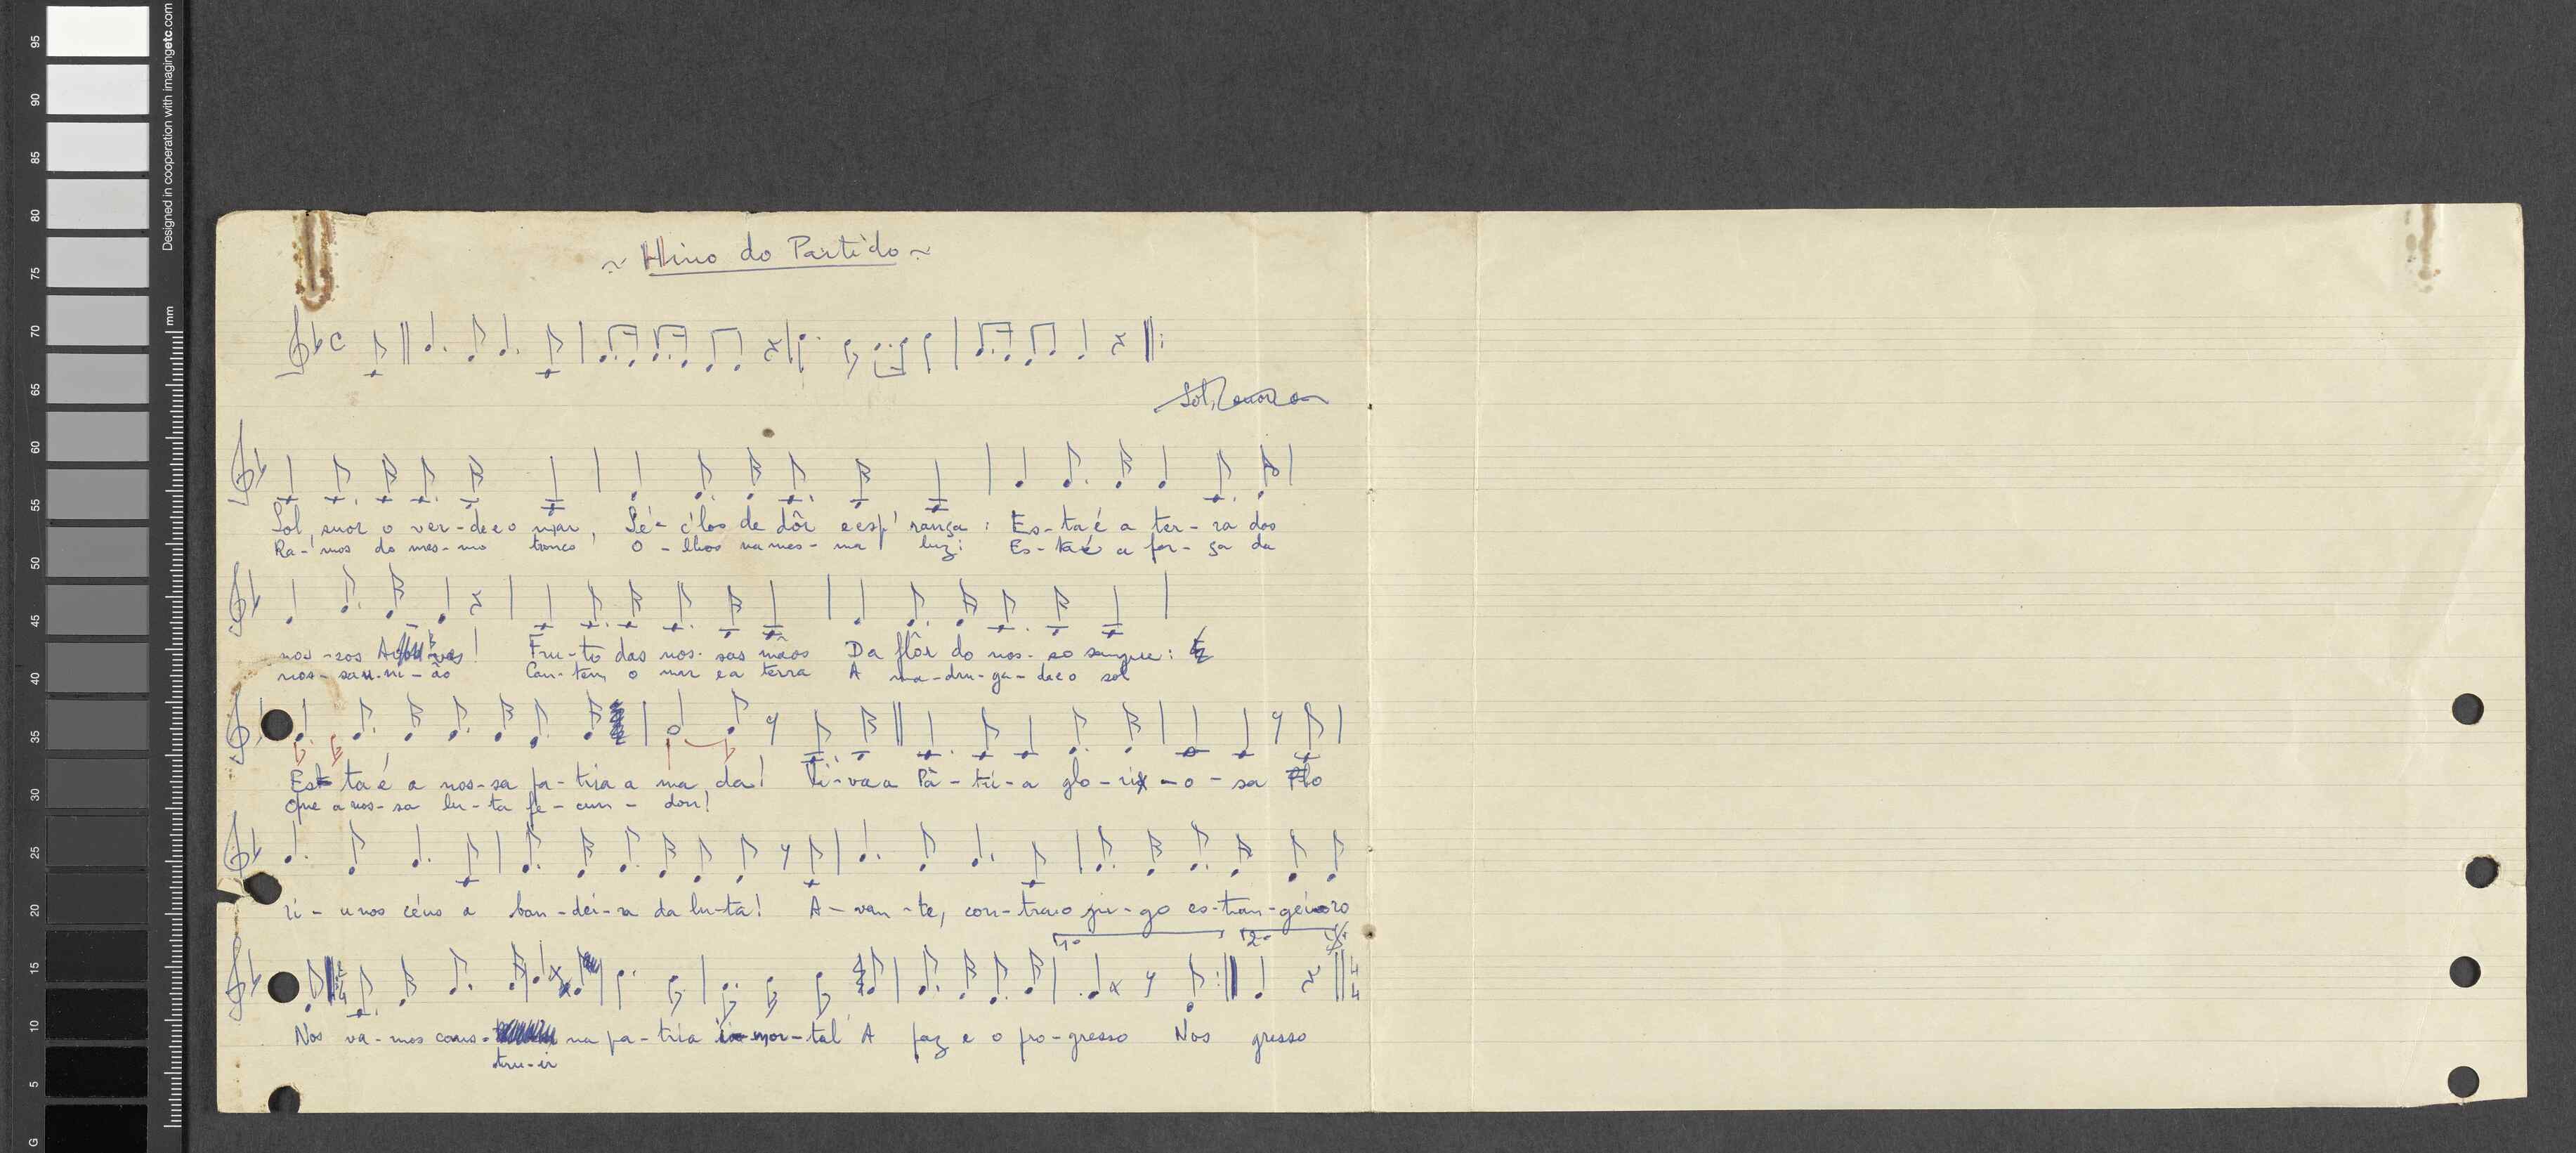 ~ Hino do Partido ~
Sol, suor o ver-de e o mar, Sé-c'los de dôr e esp'rança: Es-ta é a ter-ra dos
Ra-mos do mes-mo tronco O-lhos na mes-ma luz: Es-ta é a for-ça da
nos-sos Fru-to das nos-sas mãos Da flôr do nos-so sangue:
nos-sa u-ni-ão Can-tem o mar e a terra A ma-dru-ga-da e o sol
Es-ta é a nos-sa pa-tria a ma da! Vi-va a Pá-tri-a glo-ri-o-sa Flo
Que a nos-sa lu-ta fe-cun-dou!
ri-u nos céus a ban-dei-ra da lu-ta! A-van-te, con-tra o ju-go es-tran-geiro
1º 2º
Nos va-mos cons- na pa-tria i-mor-tal A paz e o pro-gresso Nos gresso
tru-ir
95
90
85
80
75
70
65
60
55
50
45
40
35
30
25
20
15
10
5
G
Designed in cooperation with imagingetc.com
mm